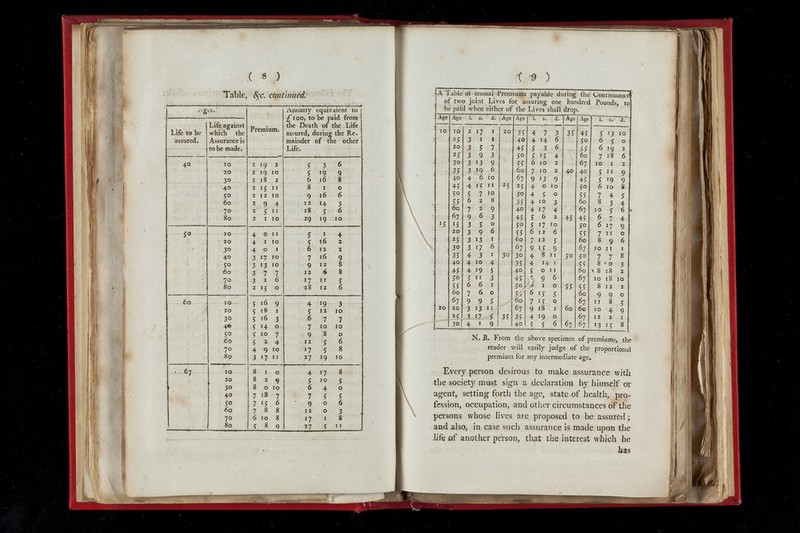 ( 8 )
Table, &c. continued.
Ages.
Life to be assured.
Life against which the Assurance is to be made.
Premium.
Annuity equivalent to £100, to be paid from the Death of the Life assured, during the Remainder of the other Life.
40 10 2 19 2 5 3 6
20 2 19 10 5 19 9
30 2 18 2 6 16 8
40 2 15 11 8 1 0
50 2 12 10 9 16 6
60 2 9 4 12 14 3
70 2 5 11 18 5 6
80 2 1 10 29 19 10
50 10 4 0 11 5 1 4
20 4 1 10 5 16 2
30 4 0 1 6 12 2
40 3 17 10 7 16 9
50 3 13 10 9 12 8
60 3 7 7 12 6 8
70 3 1 6 17 11 5
80 2 15 0 28 12 6
60 10 5 16 9 4 19 3
20 5 18 1 5 12 10
30 5 16 3 6 7 7
40 5 14 0 7 10 10
50 5 10 7 9 8 0
60 5 2 4 12 5 6
70 4 9 10 17 5 8
80 3 17 11 27 19 10
67 10 8 1 0 4 17 8
20 8 2 9 5 10 5
30 8 0 10 6 4 0
40 7 18 7 7 5 5
50 7 15 6 9 0 6
60 7 8 8 12 0 3
70 6 10 8 17 1 8
80 5 8 9 27 5 11
( 9 )
A Table of annual Premiums payable during the Continuance
of two joint Lives for assuring one hundred Pounds, to
be paid when either of the Lives shall drop.
Age Age l. s. d. Age Age l. s. d. Age Age l. s. d.
10 10 2 17 1 20 35 4 7 3 35 45 5 13 10
15 3 1 2 40 4 14 6 50 6 5 0
20 3 5 7 45 5 3 6 55 6 19 2
25 3 9 3 50 5 15 4 60 7 18 6
30 3 13 9 55 6 10 2 67 10 1 2
35 3 19 6 60 7 10 2 40 40 5 11 9
40 4 6 10 67 9 13 9 45 5 19 9
45 4 15 11 25 25 4 0 10 50 6 10 8
50 5 7 10 30 4 5 0 55 7 4 5
55 6 2 8 35 4 10 3 60 8 3 4
60 7 2 9 40 4 17 4 67 10 5 6
67 9 6 3 45 5 6 2 45 45 6 7 4
15 15 3 5 0 50 5 17 10 50 6 17 9
20 3 9 6 55 6 12 6 55 7 11 0
25 3 13 1 60 7 12 5 60 8 9 6
30 3 17 6 67 9 15 9 67 10 11 1
35 4 3 1 30 30 4 8 11 50 50 7 7 8
40 4 10 4 35 4 14 1 55 8 0 3
45 4 19 5 40 5 0 11 60 8 18 2
50 5 11 3 45 5 9 6 67 10 18 10
55 6 6 1 50 6 1 0 55 55 8 12 2
60 7 6 0 55 6 15 5 60 9 9 0
67 9 9 5 60 7 15 0 67 11 8 5
20 20 3 13 11 67 9 18 1 60 60 10 4 9
25 3 17 5 35 35 4 19 0 67 12 2 1
30 4 1 9 40 5 5 6 67 67 13 15 8
N. B. From the above specimen of premiums, the
reader will easily judge of the proportional
premium for any intermediate age.
Every person desirous to make assurance with
the society must sign a declaration by himself or
agent, setting forth the age, state of health, pro-
fession, occupation, and other circumstances of the
persons whose lives are proposed to be assured;
and also, in case such assurance is made upon the
life of another person, that the interest which he
has